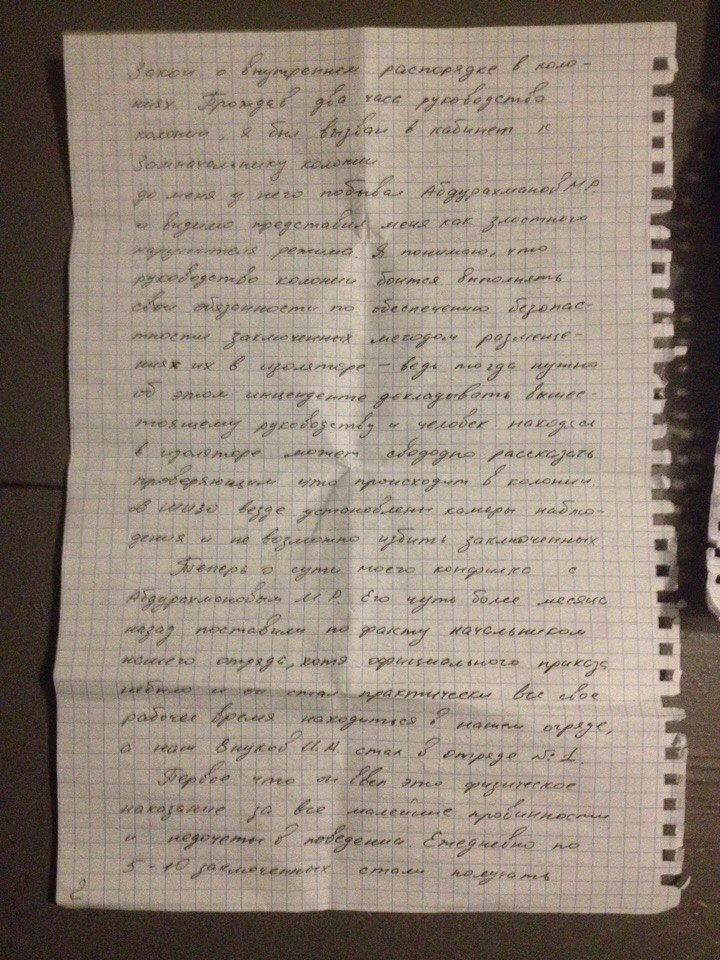 Закон о внутреннем распорядке в коло-
ниях. Прождав два часа руководства
колонии, я был вызван в кабинет к
Замначальнику колонии
до меня у него побывал Абдурахманов М.Р.
и видимо представил меня как злостного
нарушителя режима. Я понимаю, что
руководство колонии боится выполнять
свои обязанности по обеспечению безопас-
тности заключенных методом размеще-
ниях их в изоляторе – ведь тогда нужно
об этом инценденте докладывать вышес-
тоящему руководству и человек находясь
в изоляторе может свободно рассказать
проверяющим что происходит в колонии
в ШИЗО везде установлены камеры наблю-
дения и не возможно избить заключенных
Теперь о сути моего конфликта с
Абдурахмановым М.Р. Его чуть более месяца
назад поставили по факту начальником
нашего отряда, хотя официального приказа
небыло и он стал практически все свое
рабочее время находиться в нашем отряде,
а наш Внуков И.А. стал в отряде №1.
Первое что он ввел это физическое
наказание за все малейшие провинности
и недочеты в поведении. Ежедневно по
5-10 заключенных стали получать
2